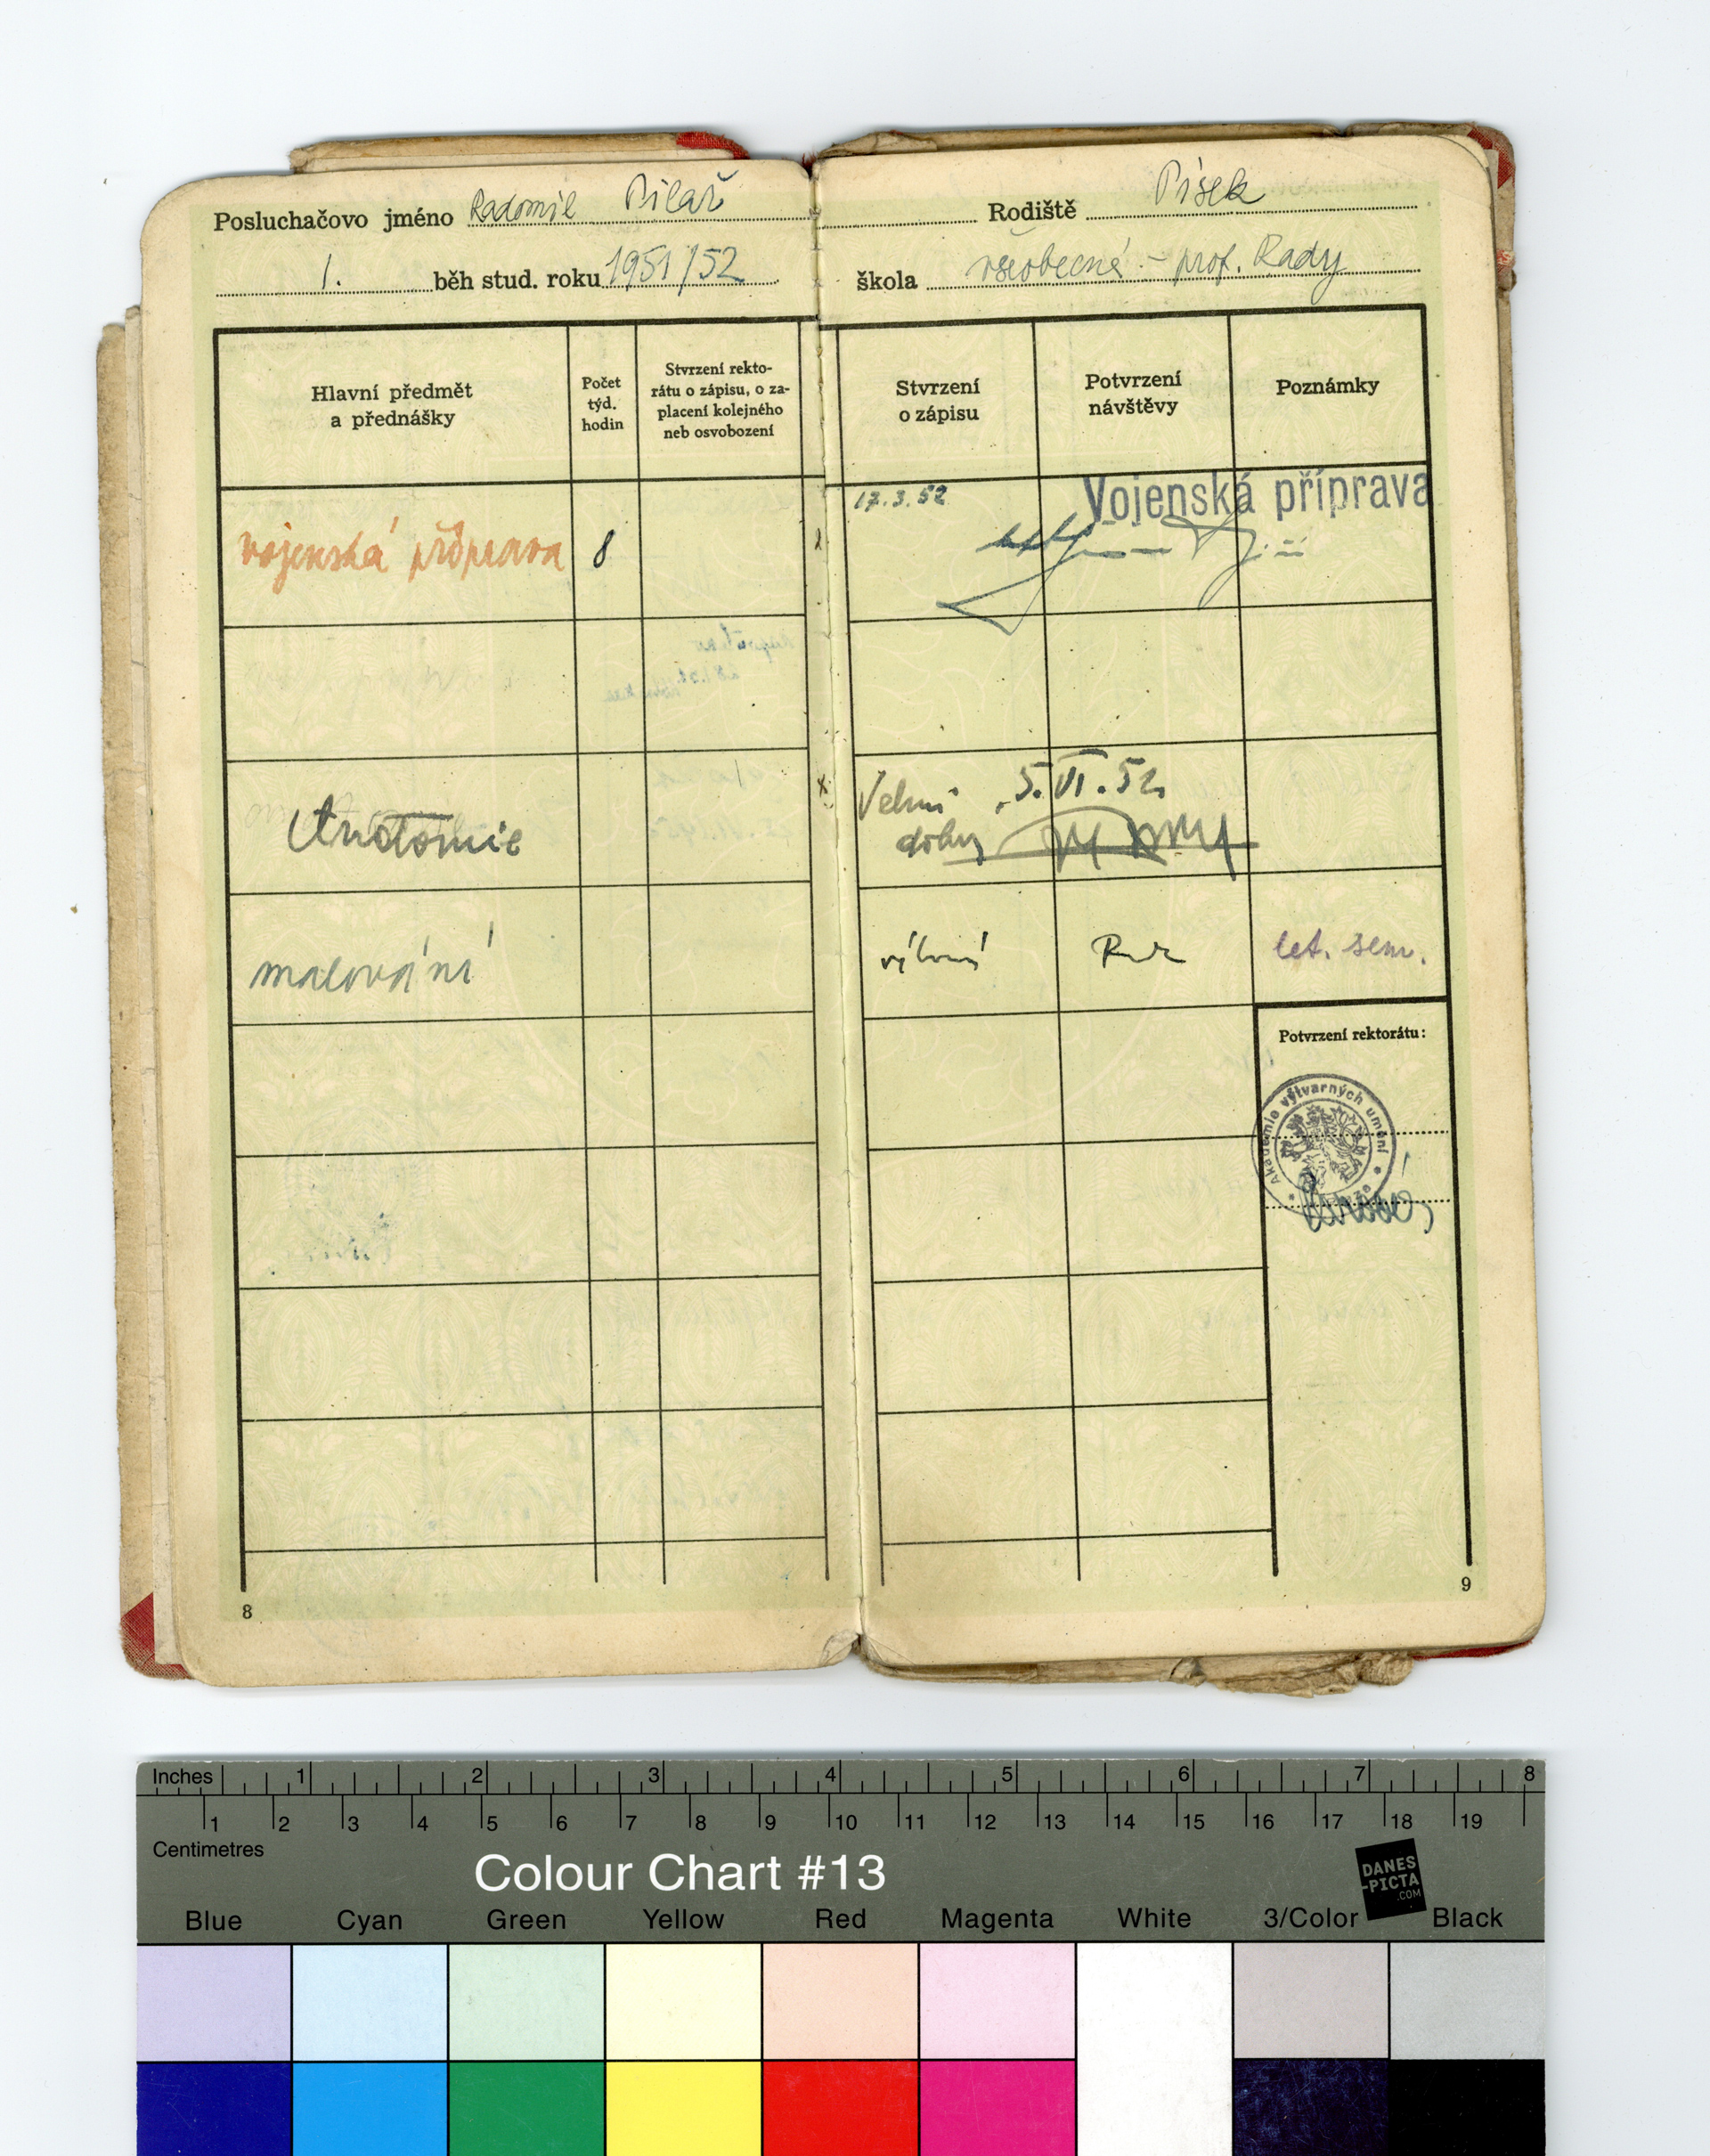 Posluchačovo jméno Radomil Pilař
Rodiště Písek
1. běh stud. roku 1951/52
škola všeobecná - prof. Rady
Hlavní předmět
a přednášky
Počet
týd.
hodin
Stvrzení rekto-
rátu o zápisu, o za-
placení kolejného
neb osvobození
Stvrzení
o zápisu
Potvrzení
návštěvy
Poznámky
vojenská příprava 8
17.3.52
Vojenská příprava
Anatomie
Velmi 5.VI.52
dobry
malování
let. sem.
Potvrzení rektorátu:
Akademie výtvarných umění
8
9
Inches 1 2 3 4 5 6 7 8
1 2 3 4 5 6 7 8 9 10 11 12 13 14 15 16 17 18 19
Centimetres
Colour Chart #13
DANES
-PICTA
.COM
Blue Cyan Green Yellow Red Magenta White 3/Color Black